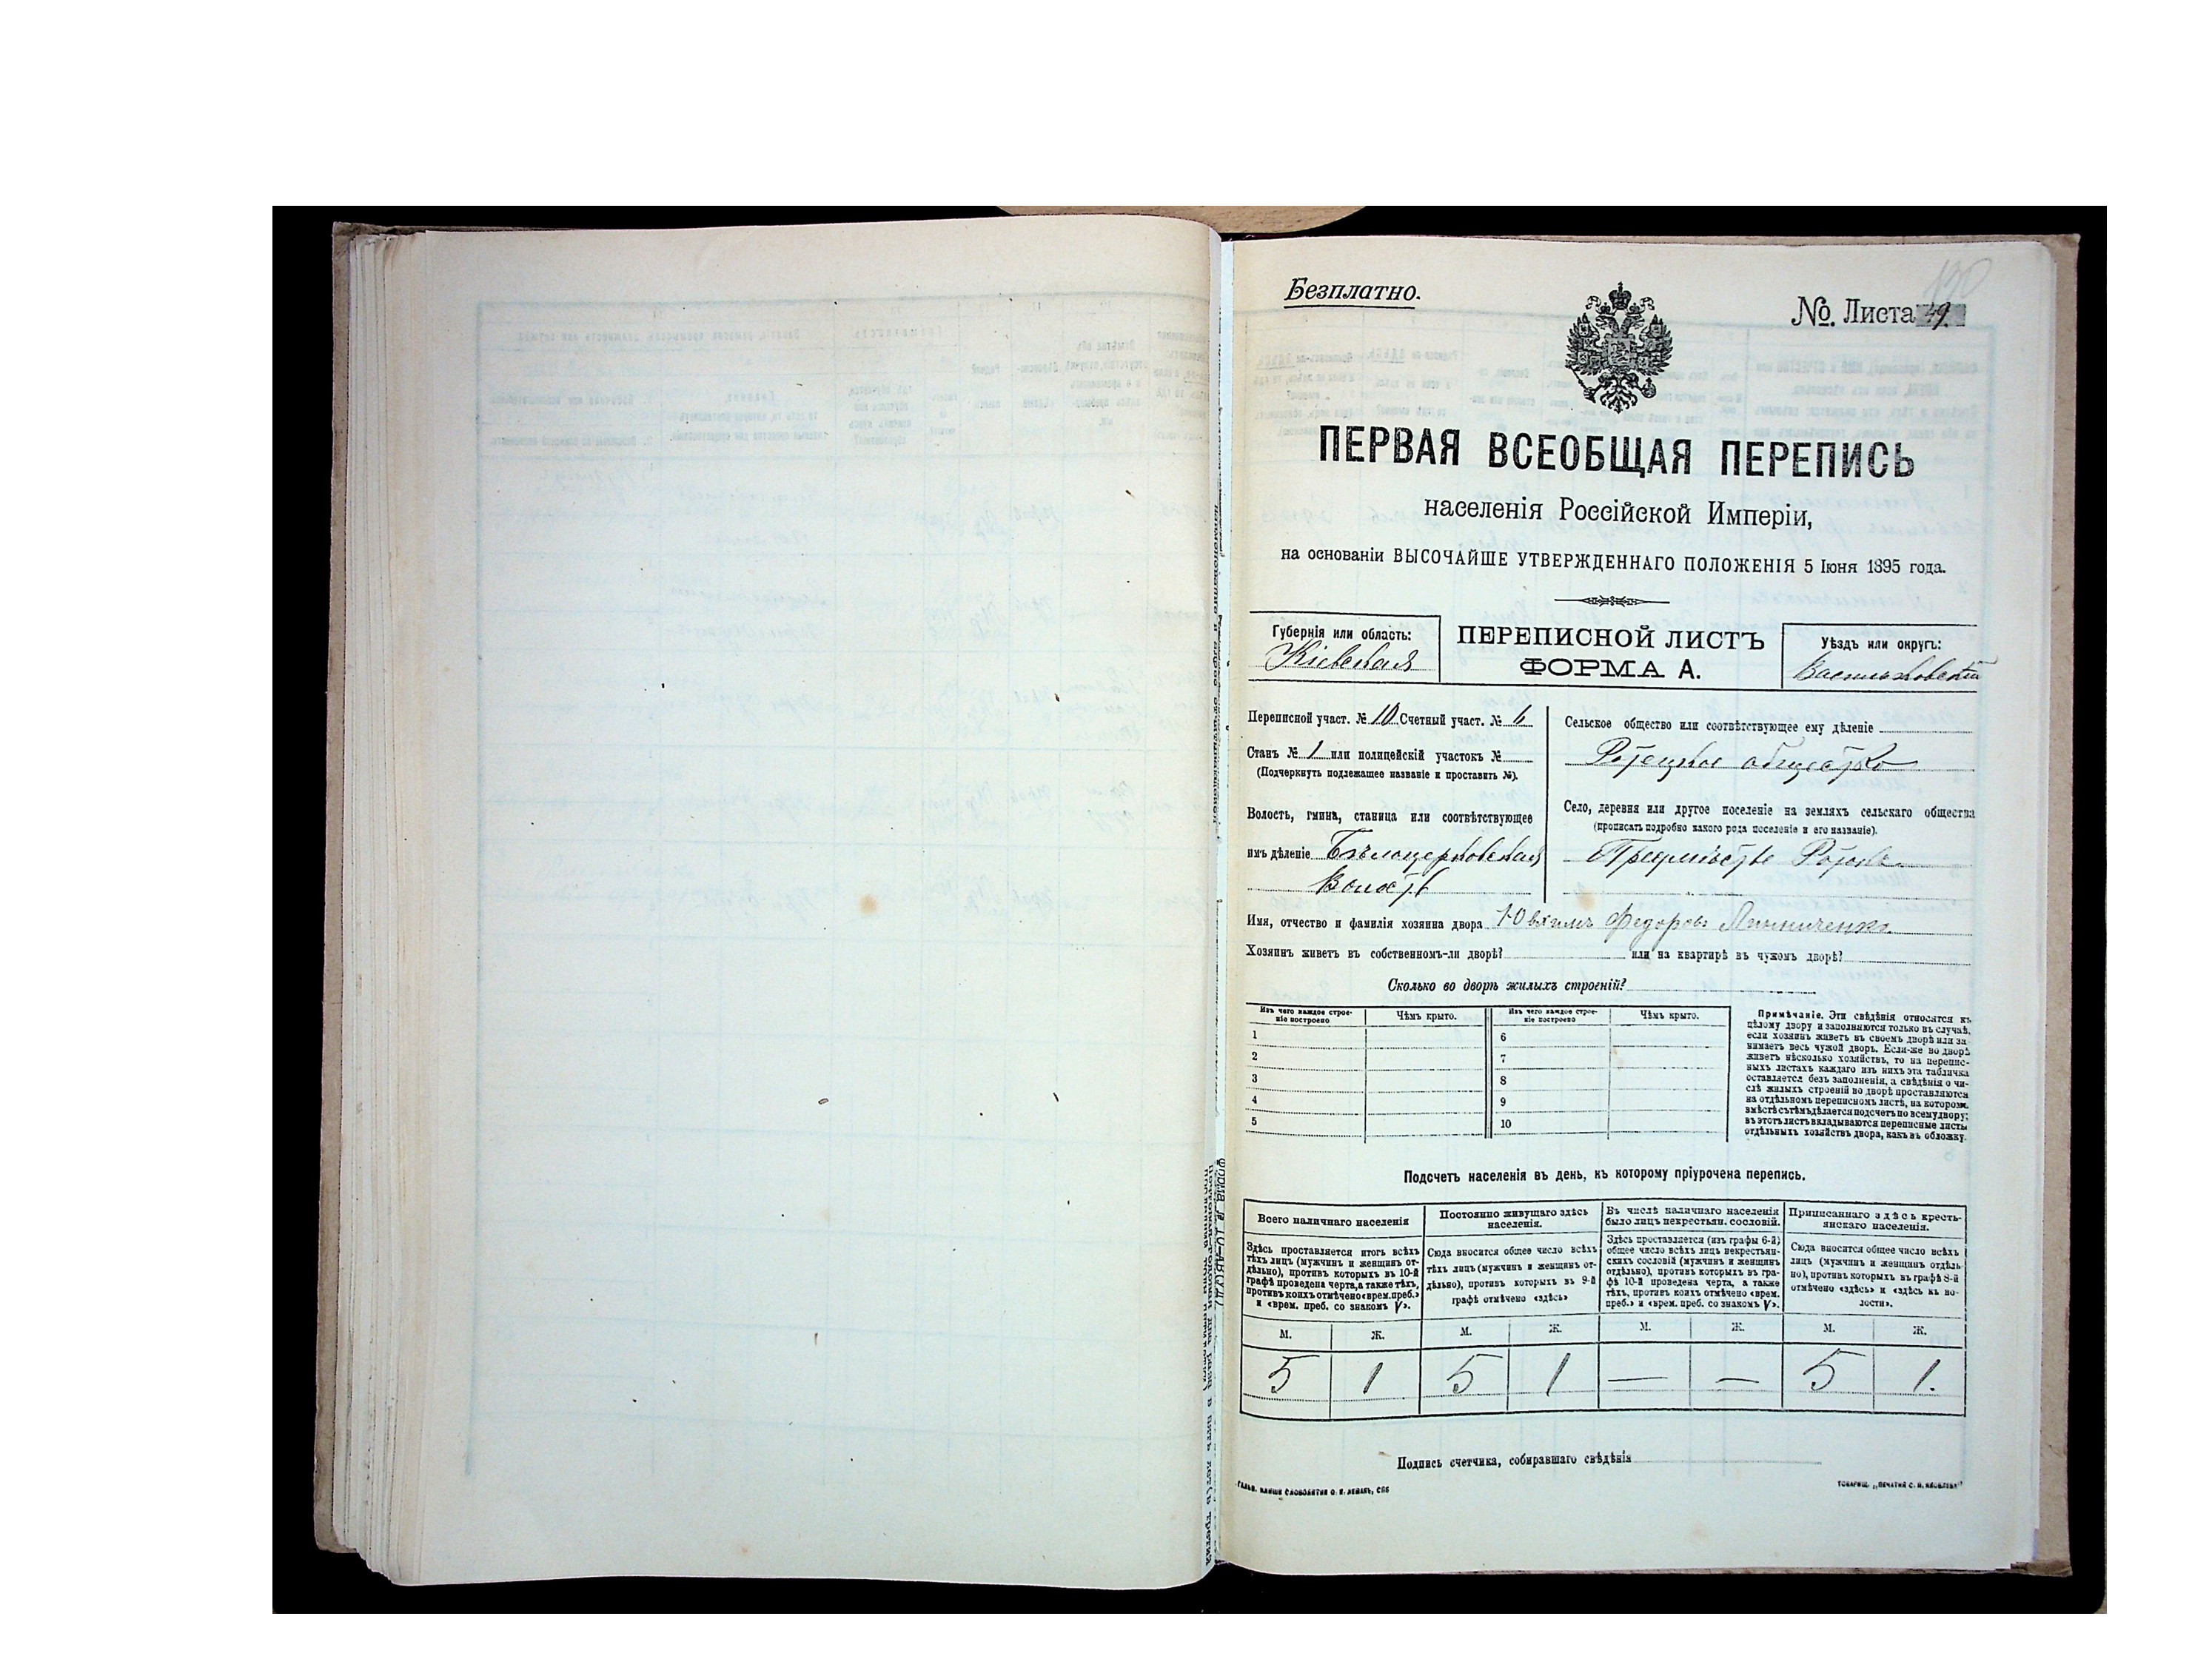 Безплатно.
№. Листа 49.
ПЕРВАЯ ВСЕОБЩАЯ ПЕРЕПИСЬ
населенія Россійской Имперіи,
на основаніи ВЫСОЧАЙШЕ УТВЕРЖДЕННАГО ПОЛОЖЕНІЯ 5 Іюня 1895 года.
Губернія или область:
Кіевская
ПЕРЕПИСНОЙ ЛИСТЪ
ФОРМА А.
Уѣздъ или округъ:
Васильковскій
Переписной участ. № 10 Счетный участ. № 6
Станъ № 1 или полицейскій участокъ №
(Подчеркнуть подлежащее названіе и проставить №).
Волость, гмина, станица или соотвѣтствующее
имъ дѣленіе Бѣлоцерковская
Волость
Сельское общество или соотвѣтствующее ему дѣленіе
общество
Село, деревня или другое поселеніе на земляхъ сельскаго общества
(прописать подробно какого рода поселеніе и его названіе).
Предмѣстье Ротокъ
Имя, отчество и фамилія хозяина двора Юхимъ Федоровъ
Хозяинъ живетъ въ собственномъ-ли дворѣ? или на квартирѣ въ чужомъ дворѣ?
Сколько во дворѣ жилыхъ строеній?
Изъ чего каждое строе-
ніе построено
Чѣмъ крыто.
Изъ чего каждое строе-
ніе построено
Чѣмъ крыто.
1
2
3
4
5
6
7
8
9
10
Примѣчаніе. Эти свѣдѣнія относятся къ
цѣлому двору и заполняются только въ случаѣ,
если хозяинъ живетъ въ своемъ дворѣ или за-
нимаетъ весь чужой дворъ. Если-же во дворѣ
живетъ нѣсколько хозяйствъ, то на перепис-
ныхъ листахъ каждаго изъ нихъ эта табличка
оставляется безъ заполненія, а свѣдѣнія о чи-
слѣ жилыхъ строеній во дворѣ проставляются
на отдѣльномъ переписномъ листѣ, на которомъ
вмѣстѣ съ тѣмъ дѣлается подсчетъ по всему двору;
въ этотъ листъ вкладываются переписные листы
отдѣльныхъ хозяйствъ двора, какъ въ обложку.
Подсчетъ населенія въ день, къ которому пріурочена перепись.
Всего наличнаго населенія
Здѣсь проставляется итогъ всѣхъ
тѣхъ лицъ (мужчинъ и женщинъ от-
дѣльно), противъ которыхъ въ 10-й
графѣ проведена черта, а также тѣхъ,
противъ коихъ отмѣчено «врем. преб.»
и «врем. преб. со знакомъ V».
Постоянно живущаго здѣсь
населенія.
Сюда вносится общее число всѣхъ
тѣхъ лицъ (мужчинъ и женщинъ от-
дѣльно), противъ которыхъ въ 9-й
графѣ отмѣчено «здѣсь»
Въ числѣ наличнаго населенія
было лицъ некрестьян. сословій.
Здѣсь проставляется (изъ графы 6-й)
общее число всѣхъ лицъ некрестьян-
скихъ сословій (мужчинъ и женщинъ
отдѣльно), противъ которыхъ въ гра-
фѣ 10-й проведена черта, а также
тѣхъ, противъ коихъ отмѣчено «врем.
преб.» и «врем. преб. со знакомъ V».
Приписаннаго здѣсь кресть-
янскаго населенія.
Сюда вносится общее число всѣхъ
лицъ (мужчинъ и женщинъ отдѣль
но), противъ которыхъ въ графѣ 8-й
отмѣчено «здѣсь» и «здѣсь къ во-
лости».
М. Ж. М. Ж. М. Ж. М. Ж.
5 1 5 1 — — 5 1.
Подпись счетчика, собиравшаго свѣдѣнія